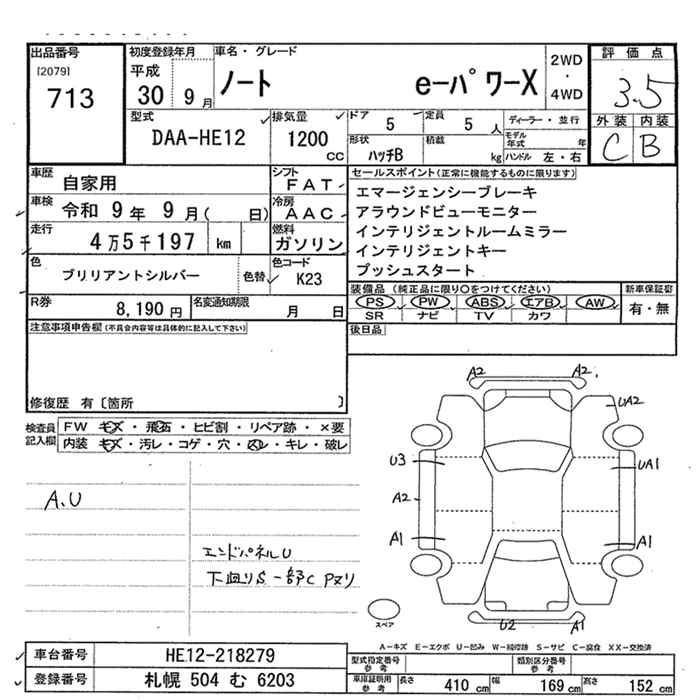 出品番号
[2079]
713
初度登録年月
平成
30 9 月
車名・グレード
ノート e-パワーX
2WD
・
4WD
評価点
3.5
外装 内装
C B
型式
DAA-HE12
排気量
1200
cc
ドア
5
定員
5 人
形状
ハッチB
積載
kg
ディーラー・並行
モデル年式 年
ハンドル 左・右
車歴
自家用
シフト
FAT
車検
令和 9 年 9 月( 日)
冷房
AAC
走行
4万5千197 km
燃料
ガソリン
色
ブリリアントシルバー
色替
色コード
K23
R券
8,190 円
名変通知期限
月 日
セールスポイント(正常に機能するものに限ります)
エマージェンシーブレーキ
アラウンドビューモニター
インテリジェントルームミラー
インテリジェントキー
プッシュスタート
装備品 (純正品に限り○をつけてください)
PS PW ABS エアB AW
SR ナビ TV カワ
新車保証書
有・無
後日品
注意事項申告欄(不具合内容等は具体的に記入して下さい)
修復歴 有〔箇所 〕
検査員
記入欄
FW キズ・飛石・ヒビ割・リペア跡・×要
内装 キズ・汚レ・コゲ・穴・凹レ・キレ・破レ
A、U
エンドパネルU
下回りS 一部C Pヌリ
A2 A2
UA2
U3 UA1
A2
A1 A1
U2 A1
スペア
A-キズ E-エクボ U-凹み W-補修跡 S-サビ C-腐食 XX-交換済
車台番号
HE12-218279
登録番号
札幌 504 む 6203
型式指定番号
参考
類別区分番号
参考
車庫証明用
参考
長さ 410 cm 幅 169 cm 高さ 152 cm